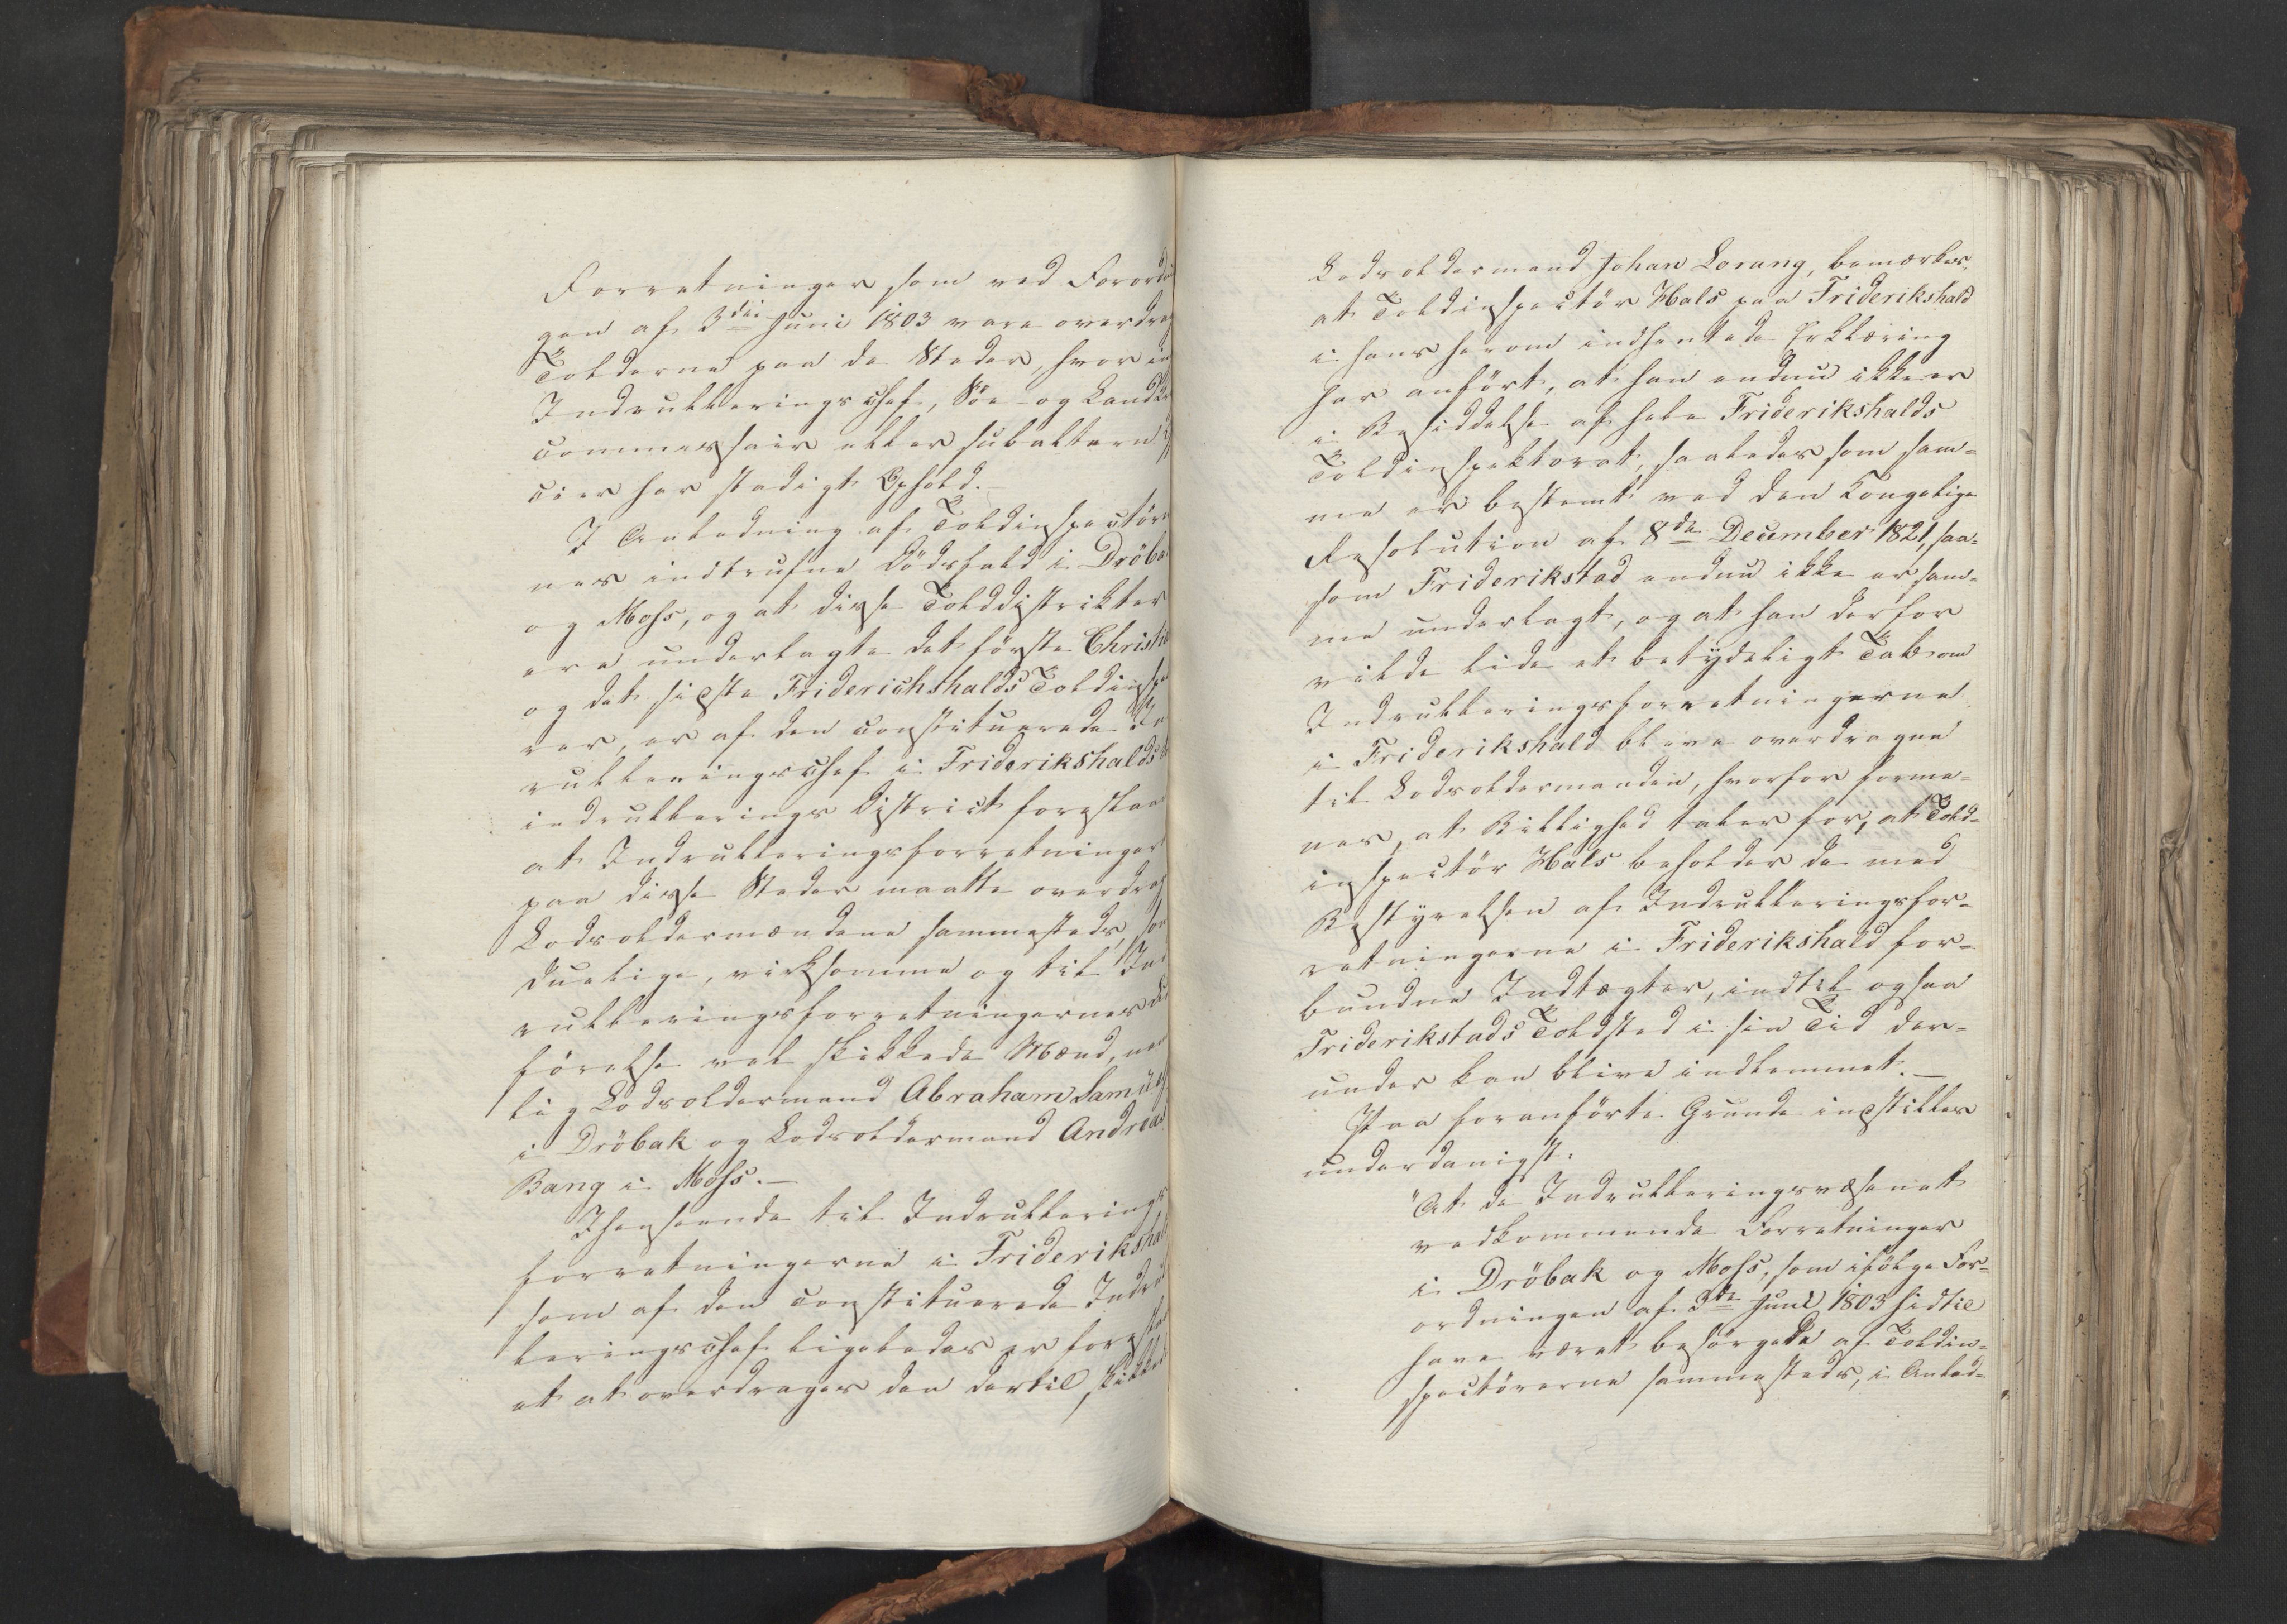 Forretninger som ved Forord
gen af 3die Juni 1803 vare overdra
Tolderne paa de Steder, hvor in
Indrulleringschef, Söe- og Land
commissair eller subaltern
cier har stadigt Ophold.—
I Anledning af Toldinspectöre
nes indtrufne Dödsfald i Dröba
og Moss, og at disse Tolddistrikter
ere underlagte det förste Christi
og det sidste Friderichshalds Toldinsp
rer, er af den constituerede In
rulleringschef i Friderikshalds
indrullerings District forestaa
at Indrulleringsforretninger
paa disse Steder maatte overdra
Lodsoldermændene sammesteds, som
duelige, virksomme og til Ind
rulleringsforretningernes Ud
förelse vel skikkede Mænd, nem
lig Lodsoldermand Abraham Samue
i Dröbak og Lodsoldermand Andreas
Bang i Moss.—
Ihenseende til Indrullerings
forretningerne i Friderikshal
som af den constituerede Indru
leringschef ligeledes er forestaa
et at overdrages den dertil skikked
Lodsoldermand Johan Lorang, bemærkes,
at Toldinspectör Hals paa Friderikshald
i hans herom indhentede Erklæring
har anfört, at han endnu ikke er
i Besiddelse af hele Friderikshalds
Toldinspektorat, saaledes som sam-
me er bestemt ved den Kongelige
Resolution af 8de December 1821, saa-
som Friderikstad endnu ikke er sam-
me underlagt, og at han derfor
vilde lide et betydeligt Tab om
Indrulleringsforretningerne
i Friderikshald bleve overdragne
til Lodsoldermanden, hvorfor forme-
nes, at Billighed taler for, at Told-
inspectör Hals beholder de med
Bestyrelsen af Indrulleringsfor-
retningerne i Friderikshald for-
bundne Indtægter, indtil ogsaa
Friderikstads Toldsted i sin Tid der-
under kan blive indlemmet.—
Paa foranförte Grunde indstilles
underdanigst:
"At de Indrulleringsvæsenet
vedkommende Forretninger
i Dröbak og Moss, som ifölge For-
ordningen af 3de Juni 1803 hidtil
have været besörgede af Toldin-
spectörerne sammesteds, i Anled-